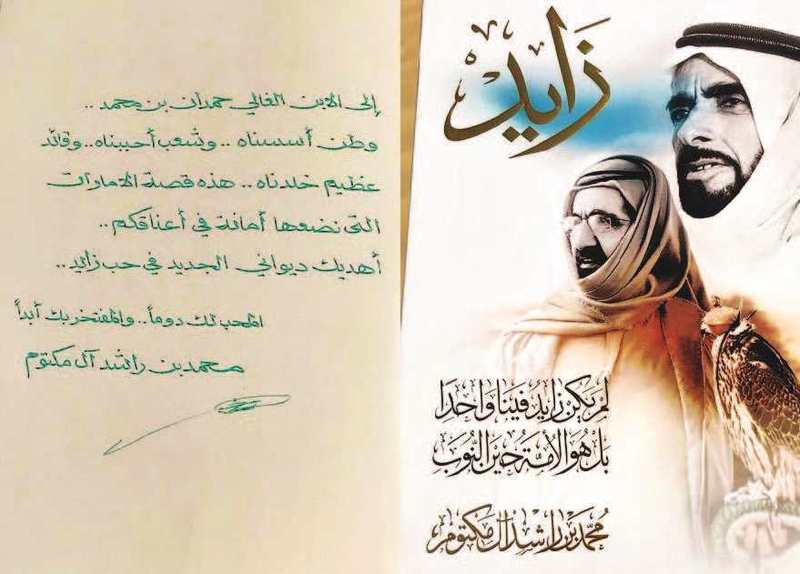 إلى الابن الغالي حمدان بن محمد ..
وطن أسسناه .. وشعب أحببناه .. وقائد
عظيم خلدناه .. هذه قصة الامارات
التي نضعها أمانة في أعناقكم ..
أهديك ديواني الجديد في حب زايد ..
المحب لك دوماً .. والمفتخر بك أبداً
محمد بن راشد آل مكتوم
زايد
لم يكن زايد فينا واحدا
بل هو الأمة حين النوب
محمد بن راشد آل مكتوم